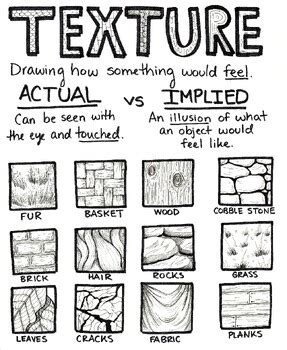 TEXTURE
Drawing how something would feel.
ACTUAL vs IMPLIED
Can be seen with the eye and touched.
An illusion of what an object would feel like.
FUR
BASKET
WOOD
COBBLE STONE
BRICK
HAIR
ROCKS
GRASS
LEAVES
CRACKS
FABRIC
PLANKS